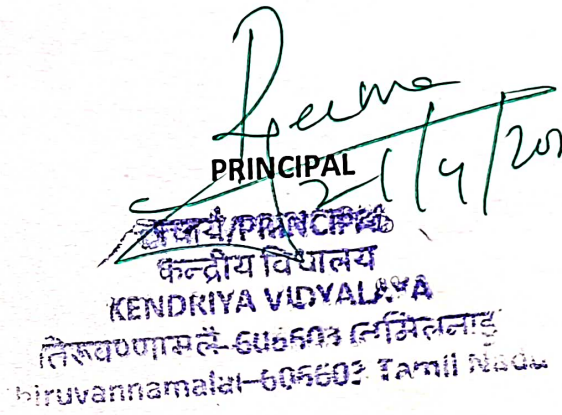 PRINCIPAL
प्राचार्य/PRINCIPAL
केन्द्रीय विद्यालय
KENDRIYA VIDYALAYA
तिरुवण्णामलै-606603 तमिलनाडु
Thiruvannamalai-606603 Tamil Nadu